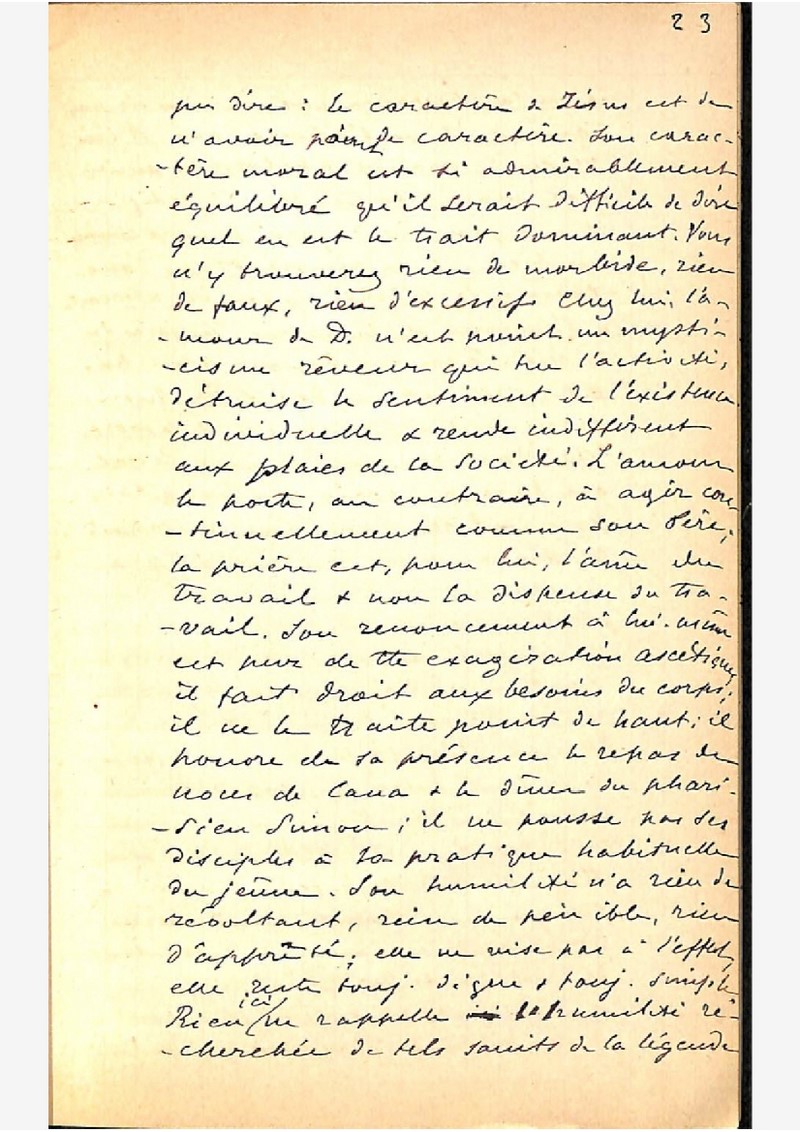 23
pu dire : le caractère de Jésus est de
n'avoir point de caractère. Son carac-
-tère moral est si admirablement
équilibré qu'il serait difficile de dire
quel en est le trait dominant. Vous
n'y trouverez rien de morbide, rien
de faux, rien d'excessif. Chez lui, l'a-
-mour de D. n'est point un mysti-
-cisme rêveur qui tue l'activité,
détruise le sentiment de l'existence
individuelle & rende indifférent
aux plaies de la société. L'amour
le porte, au contraire, à agir con-
-tinuellement comme son Père,
la prière est, pour lui, l'âme du
travail & non la dispense du tra-
-vail. Son renoncement à lui-même
est pur de tte exagération ascétique,
il fait droit aux besoins du corps ;
il ne le traite point de haut ; il
honore de sa présence le repas de
noces de Cana & le dîner du phari-
-sien Simon ; il ne pousse pas ses
disciples à la pratique habituelle
du jeûne. Son humilité n'a rien de
révoltant, rien de pénible, rien
d'apprêté ; elle ne vise pas à l'effet,
elle reste touj. digne & touj. simple
Rien ici ne rappelle l'humilité re-
-cherchée de tels saints de la légende